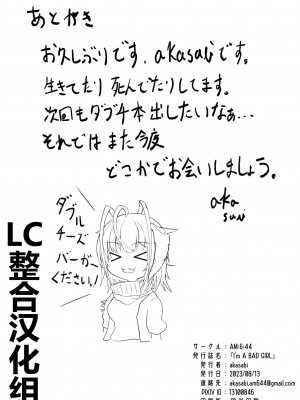 あとがき
お久しぶりです、akasabiです。
生きてたり死んでたりしてます。
次回もダブチ本出したいなぁ…
それではまた今度
どこかでお会いしましょう。
akasabi
ダブル
チーズ
バーガー
ください!
LC整合汉化组
サークル : AM6:44
発行誌名 : 「I'm A BAD GIRL」
発行者 : akasabi
発行日 : 2023/08/13
連絡先 : akasabi.am644@gmail.com
PIXIV ID : 13100846